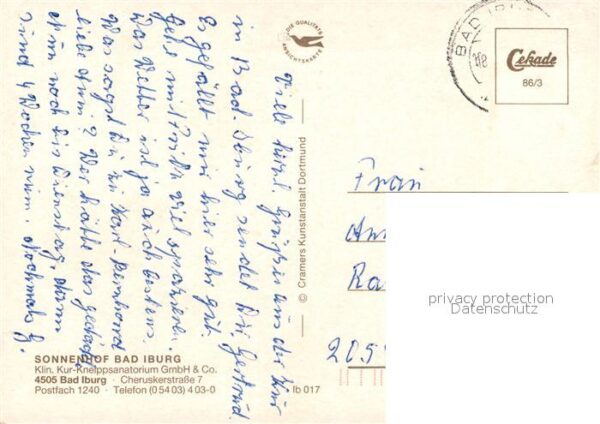 DIE QUALITÄTS
ANSICHTSKARTE
BAD IBU
Cekade
86/3
Viele herzl. Grüße aus der Kur
in Bad Iburg sendet Dir Gertrud.
Es gefällt mir hier sehr gut.
Gehe mit viel spazieren.
Das Wetter ist ja auch bestens.
Was sagst Du zu Karl-Bernhard
liebe Anni? Wer hätte das gedacht
Nun noch bis Dienstag, dann
sind 4 Wochen rum. Nochmals G.
© Cramers Kunstanstalt Dortmund
Frau
An
Ra
205
privacy protection
Datenschutz
SONNENHOF BAD IBURG
Klin. Kur-Kneippsanatorium GmbH & Co.
4505 Bad Iburg · Cheruskerstraße 7
Postfach 1240 · Telefon (0 54 03) 4 03-0
Ib 017